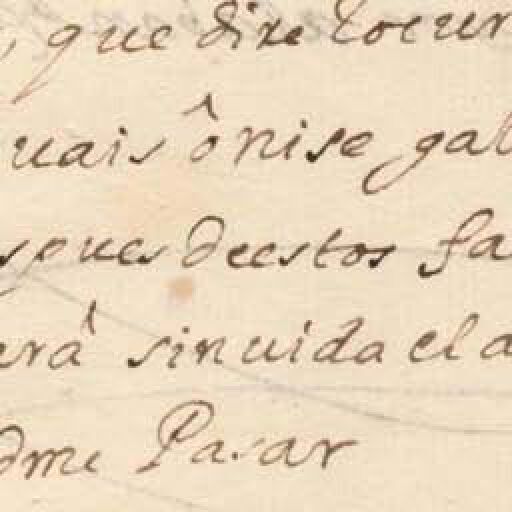 , que dire tocur
uais ô nise gal
spues deestos fa
erâ sin uida el a
dme Pasar